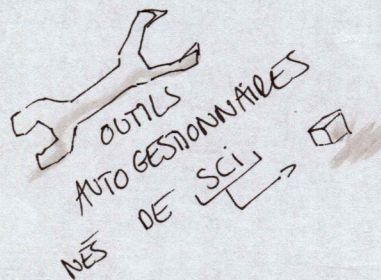 OUTILS
AUTOGESTIONNAIRES
NÉS DE SCi